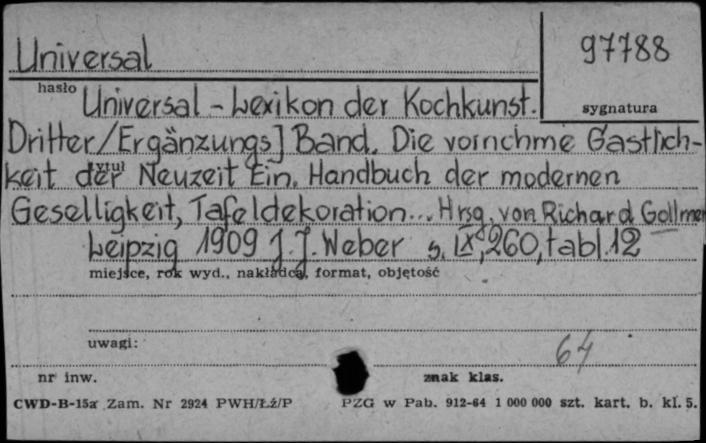 Universal
97788
hasło
Universal - Lexikon der Kochkunst.
sygnatura
Dritter/Ergänzungs] Band. Die vornehme Gastlich-
tytuł
keit der Neuzeit Ein. Handbuch der modernen
Geselligkeit, Tafeldekoration... Hrsg. von Richard Gollmer
Leipzig 1909 J. J. Weber s. IX, 260, tabl. 12
miejsce, rok wyd., nakładca, format, objętość
uwagi:
64
nr inw.
znak klas.
CWD-B-15a Zam. Nr 2924 PWH/Łź/P PZG w Pab. 912-64 1 000 000 szt. kart. b. kl. 5.